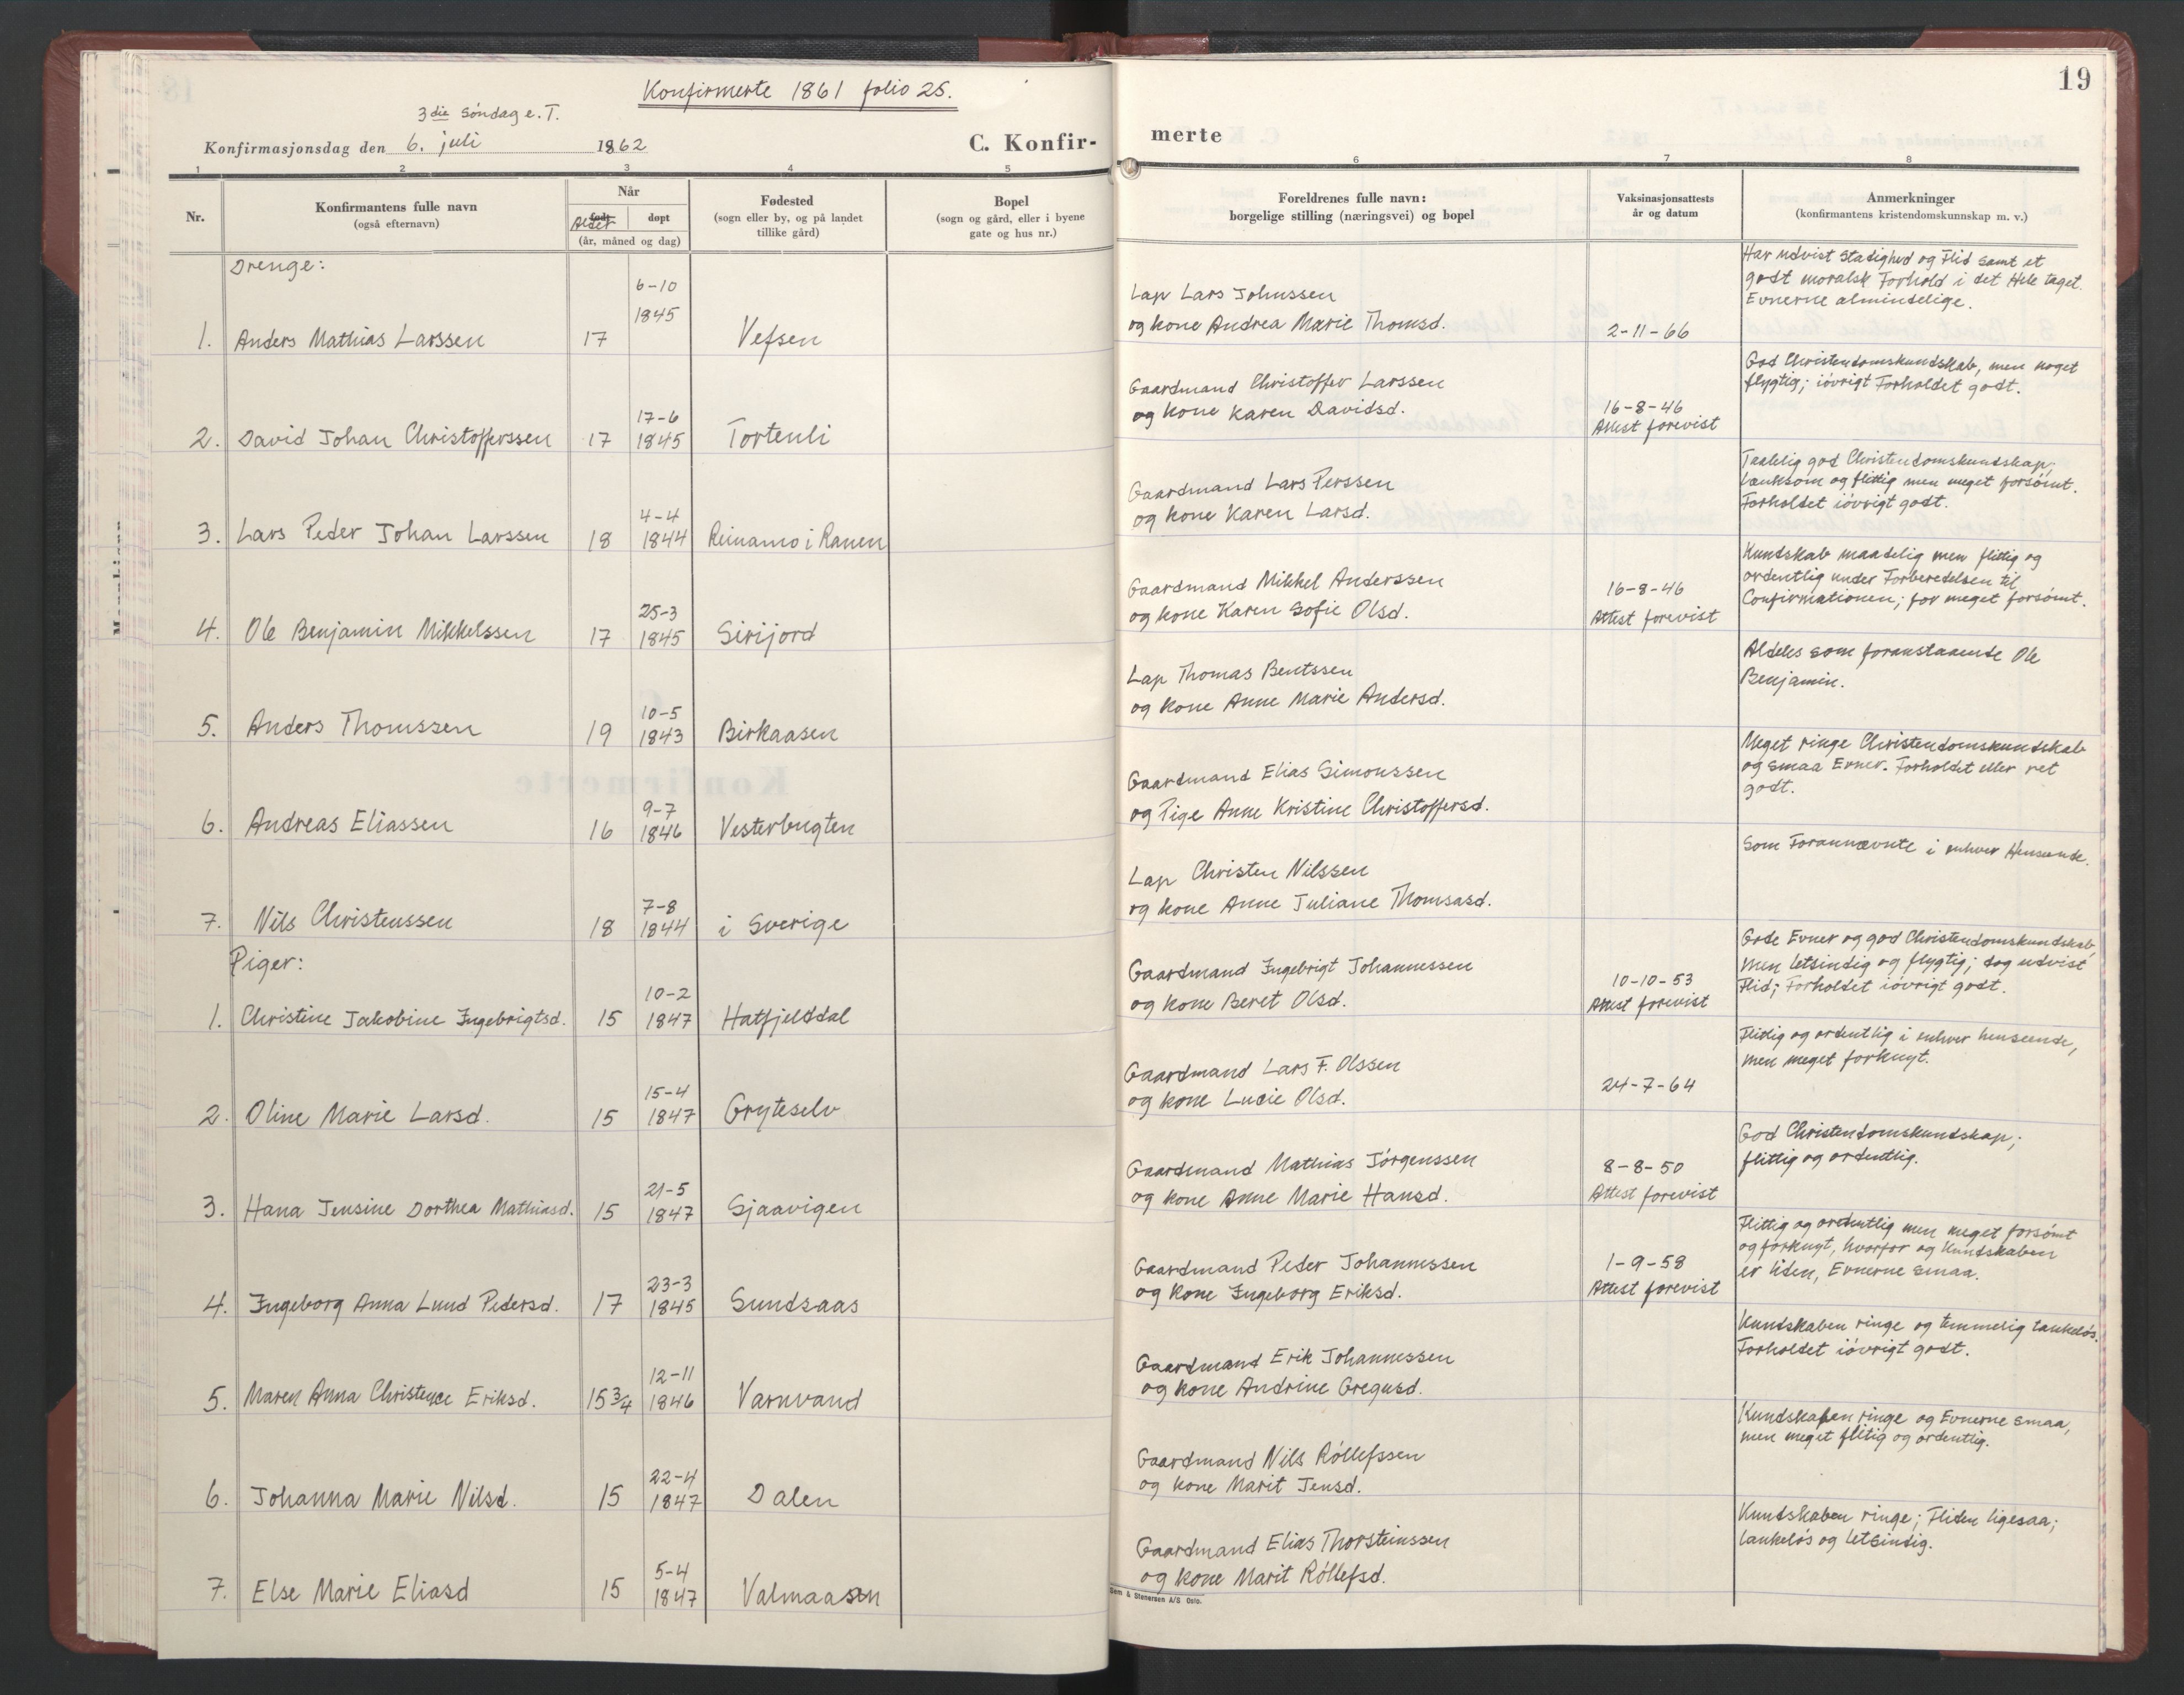 Konfirmerte 1861 folio 25.
19
3die Søndag e. T.
Konfirmasjonsdag den 6. juli 1862
C. Konfir-
merte
1 2 3 4 5 6 7 8
Nr.
Konfirmantens fulle navn
(også efternavn)
Når
født
Alder
døpt
(år, måned og dag)
Fødested
(sogn eller by, og på landet
tillike gård)
Bopel
(sogn og gård, eller i byene
gate og hus nr.)
Foreldrenes fulle navn:
borgelige stilling (næringsvei) og bopel
Vaksinasjonsattests
år og datum
Anmerkninger
(konfirmantens kristendomskunnskap m. v.)
Drenge:
1. Anders Mathias Larssen 17 6-10 1845 Vefsen
Lap Lars Johnssen
og kone Andrea Marie Thomsd.
2-11-66
Har udvist Stadighed og Flid samt et
godt moralsk Forhold i det Hele taget.
Evnerne almindelige.
2. David Johan Christofferssen 17 17-6 1845 Tortenli
Gaardmand Christoffer Larssen
og kone Karen Davidsd.
16-8-46
Attest forevist
God Christendomskundskab, men noget
flygtig; iövrigt Forholdet godt.
3. Lars Peder Johan Larssen 18 4-4 1844 Reinamo i Ranen
Gaardmand Lars Perssen
og kone Karen Larsd.
Taalelig god Christendomskundskap;
tænksom og flittig men meget forsömt.
Forholdet iövrigt godt.
4. Ole Benjamin Mikkelssen 17 25-3 1845 Sirijord
Gaardmand Mikkel Anderssen
og kone Karen Sofie Olsd.
16-8-46
Attest forevist
Kundskab maadelig men flittig og
ordentlig under Forberedelsen til
Confirmationen; for meget forsömt.
5. Anders Thomssen 19 10-5 1843 Birkaasen
Lap Thomas Bentssen
og kone Anne Marie Andersd.
Aldeles som foranstaaende Ole
Benjamin.
6. Andreas Eliassen 16 9-7 1846 Vesterbugten
Gaardmand Elias Simonssen
og Pige Anne Kristine Christoffersd.
Meget ringe Christendomskundskab
og smaa Evner. Forholdet eller ret
godt.
7. Nils Christenssen 18 7-8 1844 i Sverige
Lap Christen Nilssen
og kone Anne Juliane Thomsasd.
Som Forannævnte i enhver Henseende.
Piger:
1. Christine Jakobine Ingebrigtsd. 15 10-2 1847 Hatfjelddal
Gaardmand Ingebrigt Johannessen
og kone Beret Olsd.
10-10-53
Attest forevist
Gode Evner og god Christendomskundskab
men letsindig og flygtig; dog udvist
Flid; Forholdet iövrigt godt.
2. Oline Marie Larsd. 15 15-4 1847 Gryteselv
Gaardmand Lars F. Olssen
og kone Lucie Olsd.
24-7-64
Flittig og ordentlig i enhver henseende,
men meget forknyt.
3. Hana Jensine Dorthea Mathiasd. 15 21-5 1847 Sjaavigen
Gaardmand Mathias Jörgenssen
og kone Anne Marie Hansd.
8-8-50
Attest forevist
God Christendomskundskap;
flittig og ordentlig.
4. Ingeborg Anna Lund Pedersd. 17 23-3 1845 Sundsaas
Gaardmand Peder Johannessen
og kone Ingeborg Eriksd.
1-9-58
Attest forevist
Flittig og ordentlig men meget forsömt
og forknyt, hvorfor og Kundskaben
er liden, Evnerne smaa.
5. Maren Anna Christence Eriksd. 15 3/4 12-11 1846 Varnvand
Gaardmand Erik Johannessen
og kone Andrine Gregusd.
Kundskaben ringe og temmelig tankelös.
Forholdet iövrigt godt.
6. Johanna Marie Nilsd. 15 22-4 1847 Dalen
Gaardmand Nils Röllefssen
og kone Marit Jensd.
Kundskaben ringe og Evnerne smaa,
men meget flitig og ordentlig.
7. Else Marie Eliasd 15 5-4 1847 Valmaasen
Gaardmand Elias Thorsteinssen
og kone Marit Röllefsd.
Kundskaben ringe; Fliden ligesaa;
tankelös og letsindig.
Sem & Stenersen A/S Oslo.